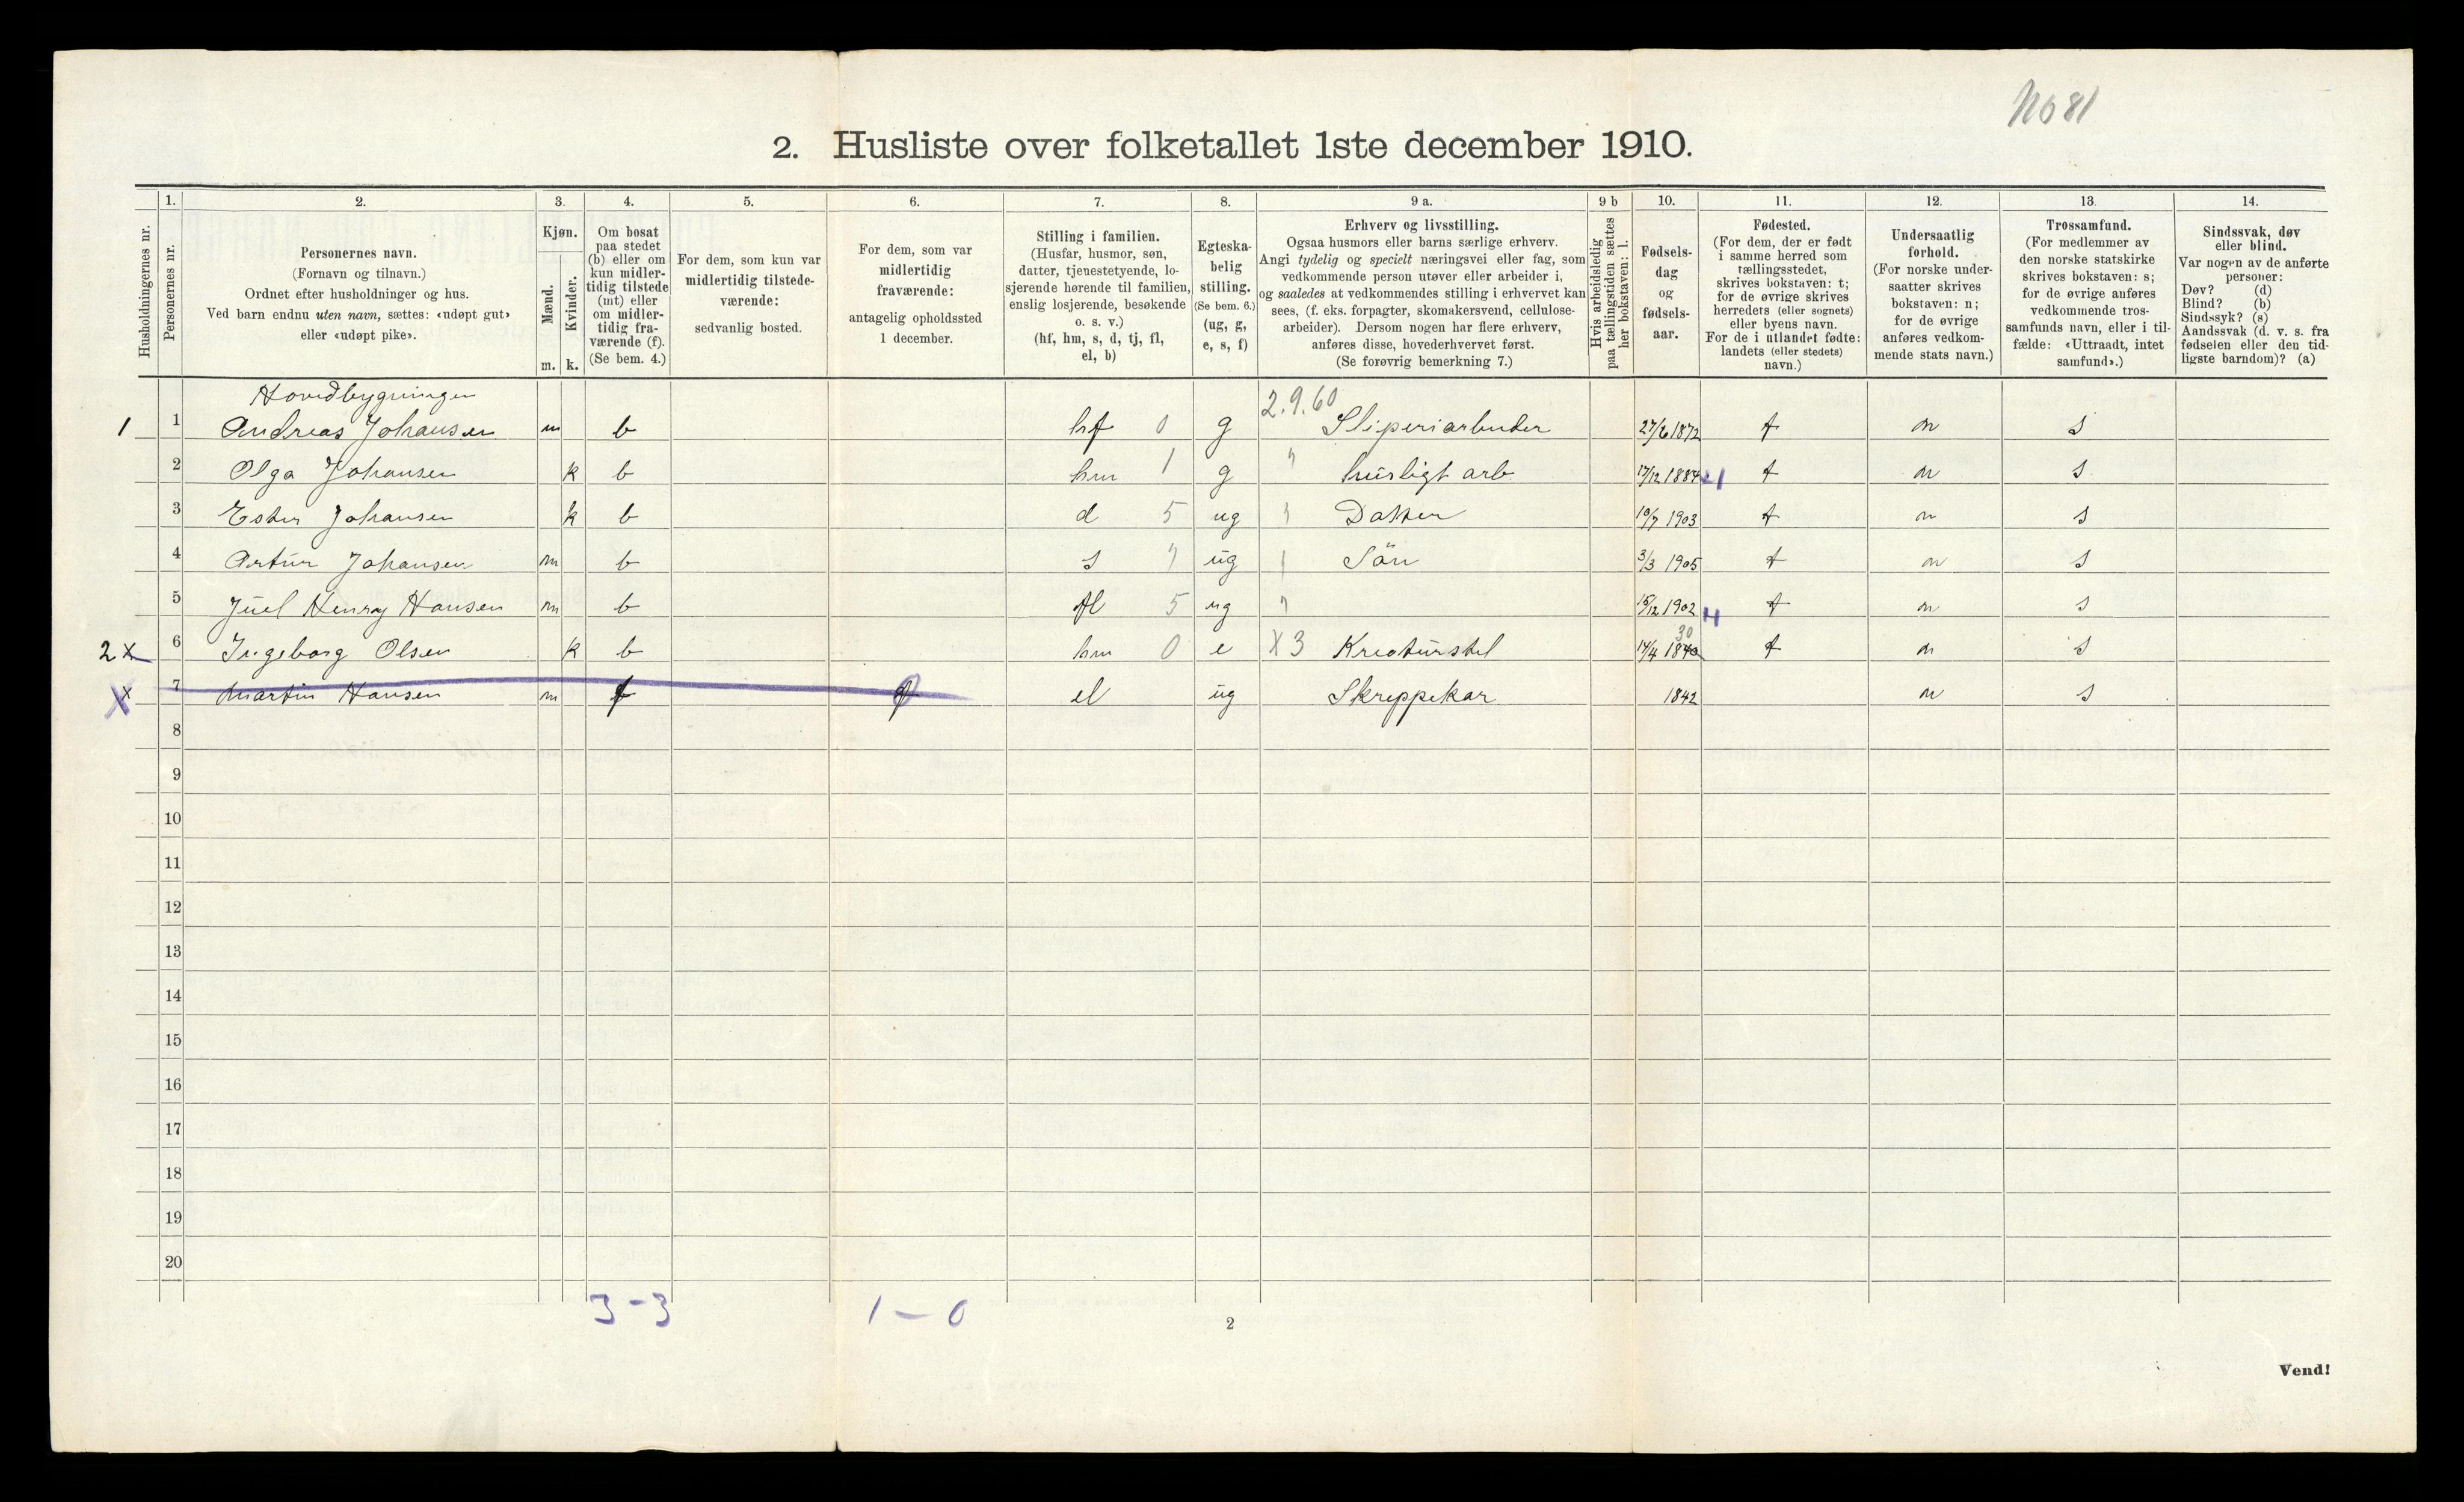 No 81
2. Husliste over folketallet 1ste december 1910.
Husholdningernes nr.
1.
Personernes nr.
2.
Personernes navn.
(Fornavn og tilnavn.)
Ordnet efter husholdninger og hus.
Ved barn endnu uten navn, sættes: «udøpt gut»
eller «udøpt pike».
3.
Kjøn.
Mænd.
Kvinder.
m. k.
4.
Om bosat
paa stedet
(b) eller om
kun midler-
tidig tilstede
(mt) eller
om midler-
tidig fra-
værende (f).
(Se bem. 4.)
5.
For dem, som kun var
midlertidig tilstede-
værende:
sedvanlig bosted.
6.
For dem, som var
midlertidig
fraværende:
antagelig opholdssted
1 december.
7.
Stilling i familien.
(Husfar, husmor, søn,
datter, tjenestetyende, lo-
sjerende hørende til familien,
enslig losjerende, besøkende
o. s. v.)
(hf, hm, s, d, tj, fl,
el, b)
8.
Egteska-
belig
stilling.
(Se bem. 6.)
(ug, g,
e, s, f)
9 a.
Erhverv og livsstilling.
Ogsaa husmors eller barns særlige erhverv.
Angi tydelig og specielt næringsvei eller fag, som
vedkommende person utøver eller arbeider i,
og saaledes at vedkommendes stilling i erhvervet kan
sees, (f. eks. forpagter, skomakersvend, cellulose-
arbeider). Dersom nogen har flere erhverv,
anføres disse, hovederhvervet først.
(Se forøvrig bemerkning 7.)
9 b
Hvis arbeidsledig
paa tællingstiden sættes
her bokstaven: l.
10.
Fødsels-
dag
og
fødsels-
aar.
11.
Fødested.
(For dem, der er født
i samme herred som
tællingsstedet,
skrives bokstaven: t;
for de øvrige skrives
herredets (eller sognets)
eller byens navn.
For de i utlandet fødte:
landets (eller stedets)
navn.)
12.
Undersaatlig
forhold.
(For norske under-
saatter skrives
bokstaven: n;
for de øvrige
anføres vedkom-
mende stats navn.)
13.
Trossamfund.
(For medlemmer av
den norske statskirke
skrives bokstaven: s;
for de øvrige anføres
vedkommende tros-
samfunds navn, eller i til-
fælde: «Uttraadt, intet
samfund».)
14.
Sindssvak, døv
eller blind.
Var nogen av de anførte
personer:
Døv? (d)
Blind? (b)
Sindssyk? (s)
Aandssvak (d. v. s. fra
fødselen eller den tid-
ligste barndom)? (a)
Hovedbygningen
2.9.60
1 1 Andreas Johansen m b hf 0 g Sliperiarbeider 27/6 1872 t n s
2 Olga Johansen k b hm 1 g " husligt arb 17/12 1884 t n s
3 Ester Johansen k b d 5 ug " Datter 10/7 1903 t n s
4 Artur Johansen m b s 7 ug Søn 3/3 1905 t n s
5 Juel Henry Hansen m b fl 5 ug " 15/12 1902 t n s
30
2 x 6 Ingeborg Olsen k b hm 0 e X 3 Kreaturstel 14/4 1840 t n s
x 7 Martin Hansen m f el ug Skreppekar 1842 n s
8
9
10
11
12
13
14
15
16
17
18
19
20
3 - 3 1 - 0
2
Vend!